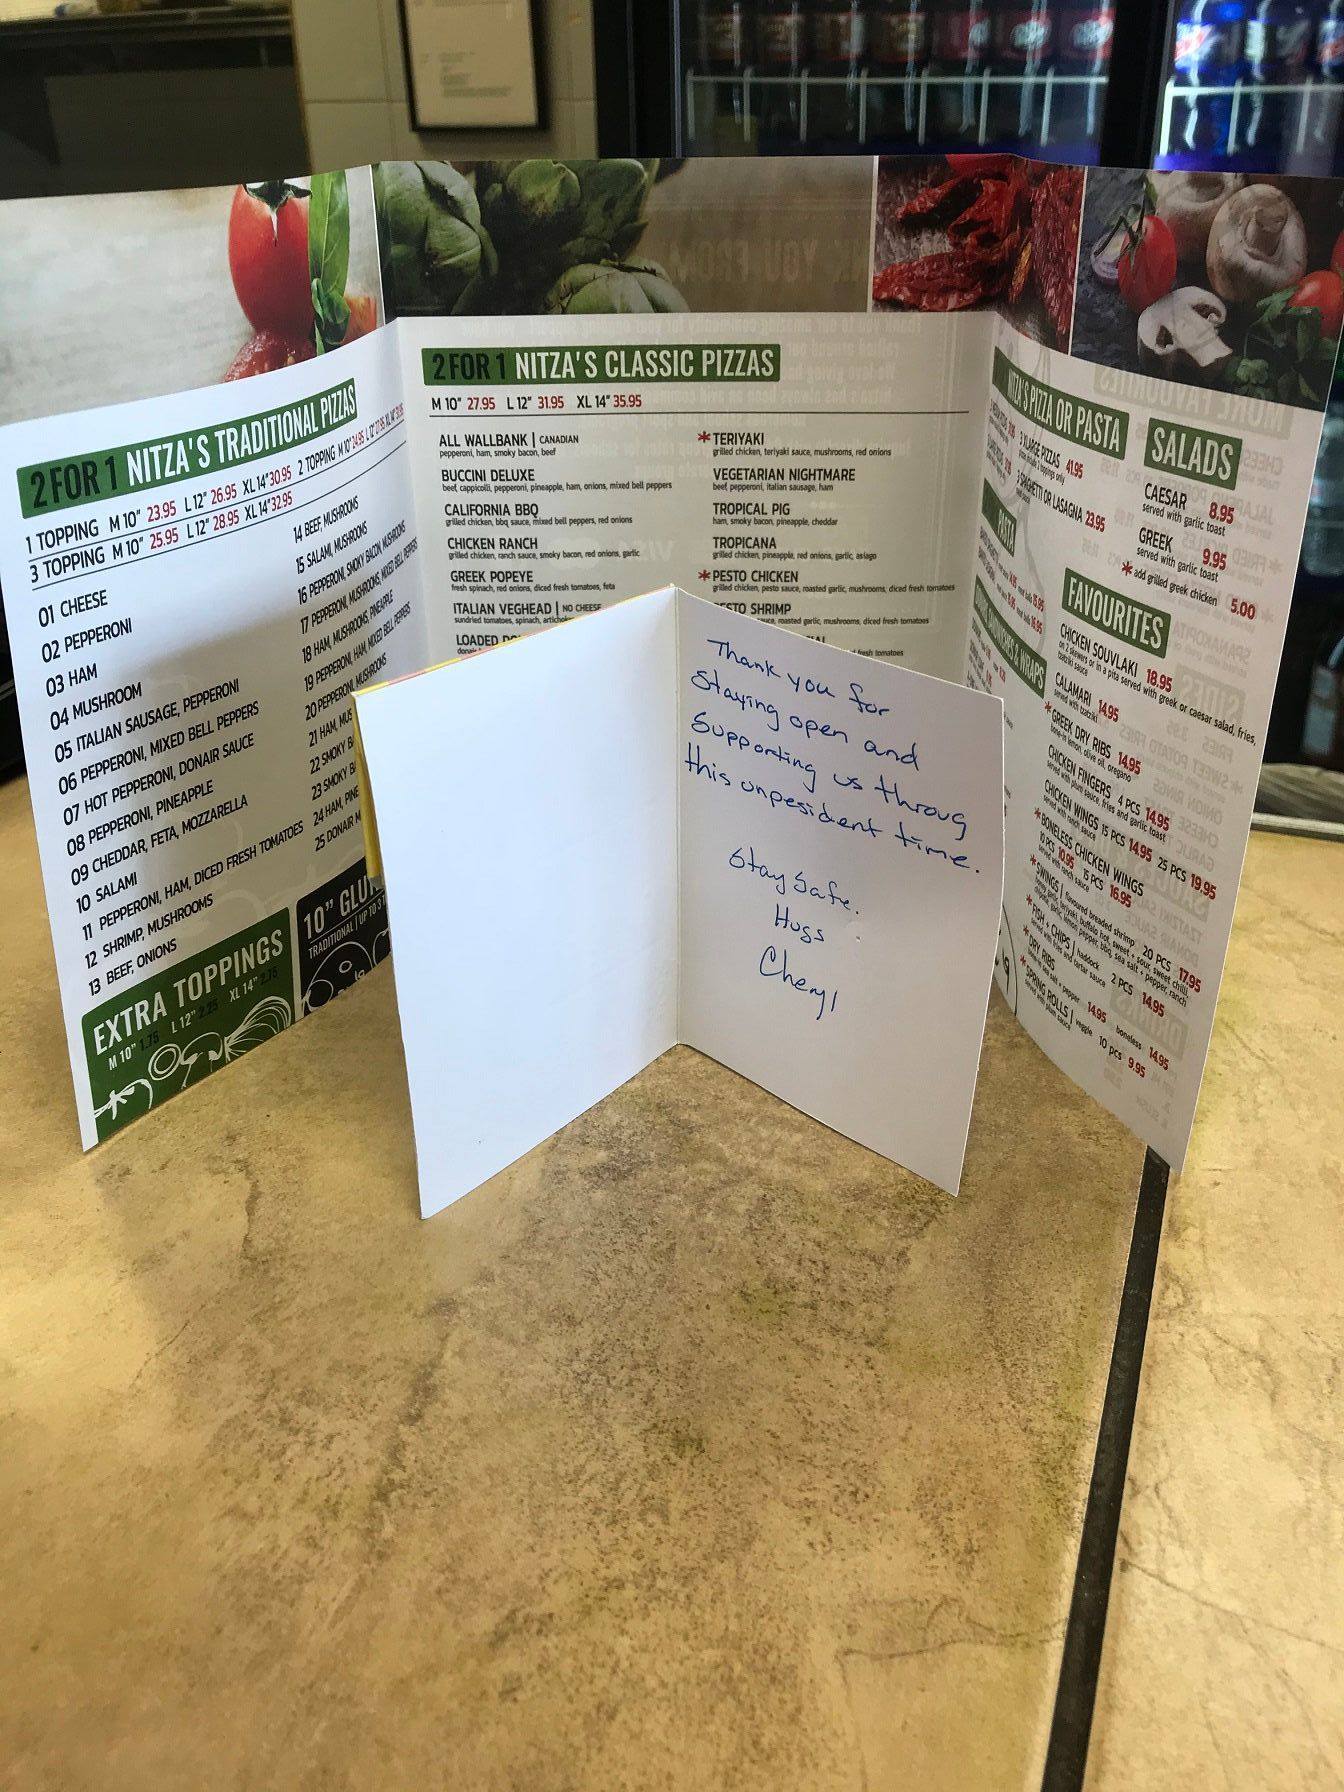 2 FOR 1 NITZA'S TRADITIONAL PIZZAS
1 TOPPING M 10" 23.95 L 12" 26.95 XL 14" 30.95 2 TOPPING M 10" 24.95 L 12" 27.95 XL 14" 31.95
3 TOPPING M 10" 25.95 L 12" 28.95 XL 14" 32.95
01 CHEESE
02 PEPPERONI
03 HAM
04 MUSHROOM
05 ITALIAN SAUSAGE, PEPPERONI
06 PEPPERONI, MIXED BELL PEPPERS
07 HOT PEPPERONI, DONAIR SAUCE
08 PEPPERONI, PINEAPPLE
09 CHEDDAR, FETA, MOZZARELLA
10 SALAMI
11 PEPPERONI, HAM, DICED FRESH TOMATOES
12 SHRIMP, MUSHROOMS
13 BEEF, ONIONS
14 BEEF, MUSHROOMS
15 SALAMI, MUSHROOMS
16 PEPPERONI, SMOKY BACON, MUSHROOMS
17 PEPPERONI, MUSHROOMS, MIXED BELL PEPPERS
18 HAM, MUSHROOMS, PINEAPPLE
19 PEPPERONI, HAM, MIXED BELL PEPPERS
20 PEPPERONI, MUSHROOMS
21 HAM, MUS
22 SMOKY B
23 SMOKY BA
24 HAM, PINE
25 DONAIR M
EXTRA TOPPINGS
M 10" 1.75 L 12" 2.25 XL 14" 2.75
10" GLU
TRADITIONAL | UP TO 3
2 FOR 1 NITZA'S CLASSIC PIZZAS
M 10" 27.95 L 12" 31.95 XL 14" 35.95
ALL WALLBANK | CANADIAN
pepperoni, ham, smoky bacon, beef
BUCCINI DELUXE
beef, cappicolli, pepperoni, pineapple, ham, onions, mixed bell peppers
CALIFORNIA BBQ
grilled chicken, bbq sauce, mixed bell peppers, red onions
CHICKEN RANCH
grilled chicken, ranch sauce, smoky bacon, red onions, garlic
GREEK POPEYE
fresh spinach, red onions, diced fresh tomatoes, feta
ITALIAN VEGHEAD | NO CHEESE
sundried tomatoes, spinach, artichok
LOADED DO
donai
*TERIYAKI
grilled chicken, teriyaki sauce, mushrooms, red onions
VEGETARIAN NIGHTMARE
beef, pepperoni, italian sausage, ham
TROPICAL PIG
ham, smoky bacon, pineapple, cheddar
TROPICANA
grilled chicken, pineapple, red onions, garlic, asiago
*PESTO CHICKEN
grilled chicken, pesto sauce, roasted garlic, mushrooms, diced fresh tomatoes
PESTO SHRIMP
uce, roasted garlic, mushrooms, diced fresh tomatoes
AL!
fresh tomatoes
NITZA'S PIZZA OR PASTA
3 XLARGE PIZZAS 41.95
3 SPAGHETTI OR LASAGNA 23.95
PASTA
& WRAPS
SALADS
CAESAR 8.95
served with garlic toast
GREEK 9.95
served with garlic toast
* add grilled greek chicken 5.00
FAVOURITES
CHICKEN SOUVLAKI 18.95
on 2 skewers or in a pita served with greek or caesar salad, fries,
tzatziki sauce
CALAMARI 14.95
served with tzatziki
*GREEK DRY RIBS 14.95
bone-in lemon, olive oil, oregano
CHICKEN FINGERS 4 PCS 14.95
served with plum sauce, fries and garlic toast
CHICKEN WINGS 15 PCS 14.95 25 PCS 19.95
served with ranch sauce
*BONELESS CHICKEN WINGS
10 PCS 10.95 15 PCS 16.95
served with ranch sauce
*SWINGS | flavoured breaded shrimp 20 PCS 17.95
*FISH & CHIPS | haddock 2 PCS 14.95
served with fries and tartar sauce
*DRY RIBS
sea salt + pepper 14.95 boneless 14.95
*SPRING ROLLS | veggie 10 PCS 9.95
served with plum sauce
Thank you for
Staying open and
Supporting us throug
this unpesident time.
Stay Safe.
Hugs
Cheryl